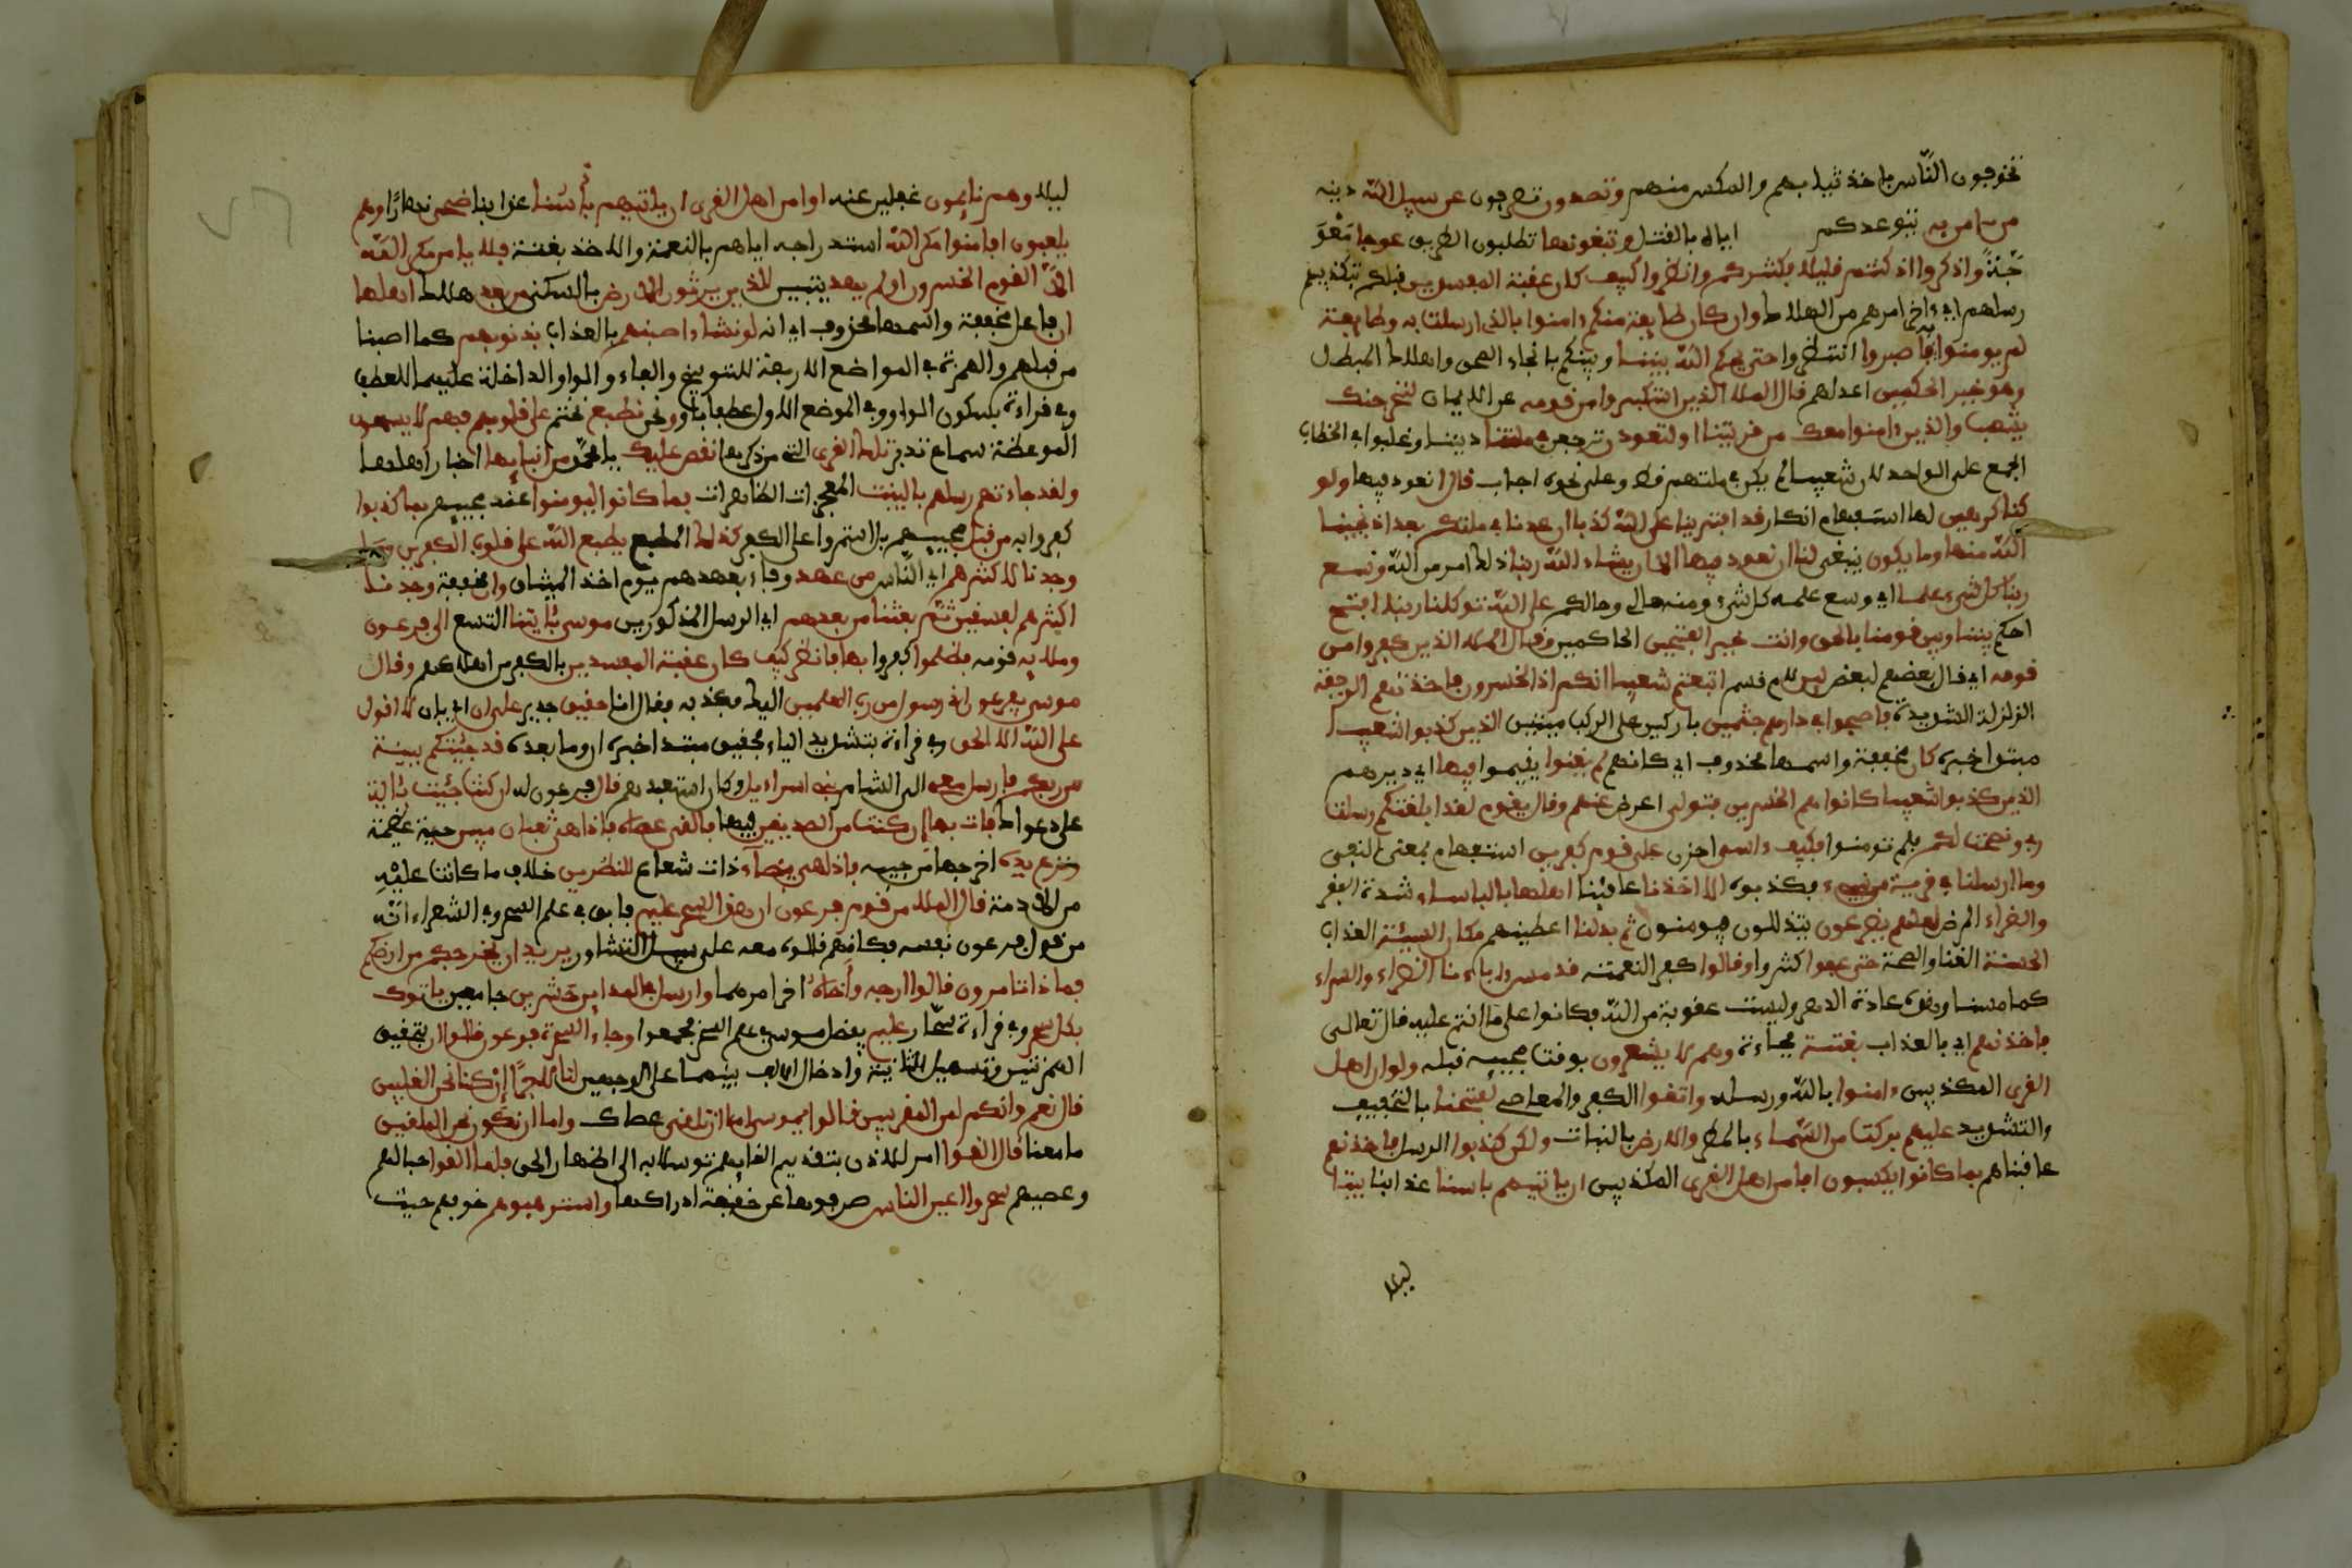 تخوفون الناس باخذ ثيابهم والمكس منهم وتصدون تصرفون عن سبيل الله دينه
من ءامن به بتوعدكم اياه بالقتل وتبغونها تطلبون الطريق عوجا معو
جّة واذكروا اذ كنتم قليلا فكثركم وانظروا كيف كان عقبة المفسدين قبلكم بتكذيبهم
رسلهم اي ءاخر امرهم من الهلاك وان كان طايفة منكم ءامنوا بالذي ارسلت به وطايفة
لم يومنوا به فاصبروا انتظروا حتى يحكم الله بيننا وبينكم بانجاء المحق واهلاك المبطل
وهو خير الحكمين اعدلهم قال الملا الذين استكبروا من قومه عن الايمان لنخرجنك
يشعيب والذين ءامنوا معك من قريتنا او لتعودن ترجعن في ملتنا ديننا وغلبوا في الخطاب
الجمع على الواحد لان شعيبا لم يكن في ملتهم قط وعلى نحوه اجاب قال ا نعود فيها ولو
كنا كرهين لها استفهام انكار قد افترينا على الله كذبا ان عدنا في ملتكم بعد اذ نجينا
الله منها وما يكون ينبغي لنا ان نعود فيها الا ان يشاء الله ربنا ذلك امر من الله وسع
ربنا كل شيء علما اي وسع علمه كل شيء ومنه حالي وحالكم على الله توكلنا ربنا افتح
احكم بيننا وبين قومنا بالحق وانت خير الفتحين الحاكمين وقال الملا الذين كفروا من
قومه اي قال بعضهم لبعض لين لام قسم اتبعتم شعيبا انكم اذا لخسرون فاخذتهم الرجفة
الزلزلة الشديدة فاصبحوا في دارهم جثمين باركين على الركب ميتين الذين كذبوا شعيبا
مبتدا خبره كان مخففة واسمها محذوف اي كانهم لم يغنوا يقيموا فيها اي ديرهم
الذين كذبوا شعيبا كانوا هم الخسرين فتولى اعرض عنهم وقال يقوم لقد ابلغتكم رسلت
ربي ونصحت لكم فلم تومنوا فكيف ءاسى احزن على قوم كفرين استفهام بمعنى النفي
وما ارسلنا في قرية من نبيء فكذبوه الا اخذنا عاقبنا اهلها بالباساء شدة الفقر
والضراء المرض لعلهم يضرعون يتذللون فيومنون ثم بدلنا اعطينهم مكان السيئة العذاب
الحسنة الغنا والصحة حتى عفوا كثروا وقالوا كفرا للنعمة قد مس ءاباءنا الضراء والسراء
كما مسنا وهذه عادة الدهر وليست عقوبة من الله فكانوا على ما انتم عليه قال تعالى
فاخذنهم اي بالعذاب بغتة فجاءة وهم لا يشعرون بوقت مجييه قبله ولو ان اهل
القرى المكذبين ءامنوا بالله ورسله واتقوا الكفر والمعاصي لفتحنا بالتخفيف
والتشديد عليهم بركت من السماء بالمطر والارض بالنبات ولكن كذبوا الرسل فاخذنهم
عاقبناهم بما كانوا يكسبون افامن اهل القرى المكذبين ان ياتيهم باسنا عذابنا بيتا
ليلا
ليلا وهم نايمون غفلين عنه اوامن اهل القرى ان ياتيهم باسنا عذابنا ضحى نهارا وهم
يلعبون افامنوا مكر الله استدراجه اياهم بالنعمة والاخذ بغتة فلا يامن مكر الله
الا القوم الخسرون اولم يهد يتبين للذين يرثون الارض بالسكنى من بعد هلاك اهلها
ان فاعل مخففة واسمها محذوف اي انه لو نشاء اصبنهم بالعذاب بذنوبهم كما اصبنا
من قبلهم والهمزة في المواضع الاربعة للتوبيخ والفاء والواو الداخلة عليهما للعطف
وفي قراءة بسكون الواو في الموضع الاول عطفا باو ونحن نطبع نختم على قلوبهم فهم لا يسمعون
الموعظة سماع تدبر تلك القرى التي مر ذكرها نقص عليك يا محمد من انبايها اخبار اهلها
ولقد جاءتهم رسلهم بالبينت المعجزات الظاهرات فما كانوا ليومنوا عند مجييهم بما كذبوا
كفروا به من قبل مجييهم بل استمروا على الكفر كذلك الطبع يطبع الله على قلوب الكفرين وما
وجدنا لاكثرهم اي الناس من عهد وفاء بعهدهم يوم اخذ الميثاق وان مخففة وجدنا
اكثرهم لفسقين ثم بعثنا من بعدهم اي الرسل المذكورين موسى بئايتنا التسع الى فرعون
وملايه قومه فظلموا كفروا بها فانظر كيف كان عقبة المفسدين بالكفر من اهلاكهم وقال
موسى يفرعون اني رسول من رب العلمين اليك فكذبه فقال انا حقيق جدير على ان اي بان لا اقول
على الله الا الحق وفي قراءة بتشديد الياء فحقيق مبتدا خبره ان وما بعده قد جئتكم ببينة
من ربكم فارسل معي الى الشام بني اسراءيل وكان استعبدهم قال فرعون له ان كنت جئت بئاية
على دعواك فات بها ان كنت من الصدقين فيها فالقى عصاه فاذا هي ثعبان مبين حية عظيمة
ونزع يده اخرجها من جيبه فاذا هي بيضاء ذات شعاع للنظرين خلاف ما كانت عليه
من الادمة قال الملا من قوم فرعون ان هذا لسحر عليم فايق في علم السحر وفي الشعراء انه
من قول فرعون نفسه فكانهم قالوه معه على سبيل التشاور يريد ان يخرجكم من ارضكم
فماذا تامرون قالوا ارجه واخاه اخر امرهما وارسل في المداين حشرين جامعين ياتوك
بكل سحر وفي قراءة سحار عليم يفضل موسى في علم السحر فجمعوا وجاء السحرة فرعون قالوا ا ن بتحقيق
الهمزتين وتسهيل الثانية وادخال الف بينهما على الوجهين لنا لاجرا ان كنا نحن الغلبين
قال نعم وانكم لمن المقربين قالوا يموسى اما ان تلقي عصاك واما ان نكون نحن الملقين
ما معنا قال القوا امر للاذن بتقديم القايهم توسلا به الى اظهار الحق فلما القوا حبالهم
وعصيهم سحروا اعين الناس صرفوها عن حقيقة ادراكها واسترهبوهم خوفهم حيث